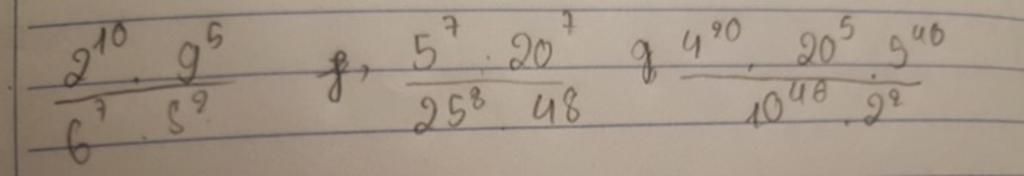 2^10 · 9^5 / 6^7 · 5^9 f, 5^7 · 20^7 / 25^8 48 g 4^20 · 20^5 · 5^40 / 10^48 · 2^2